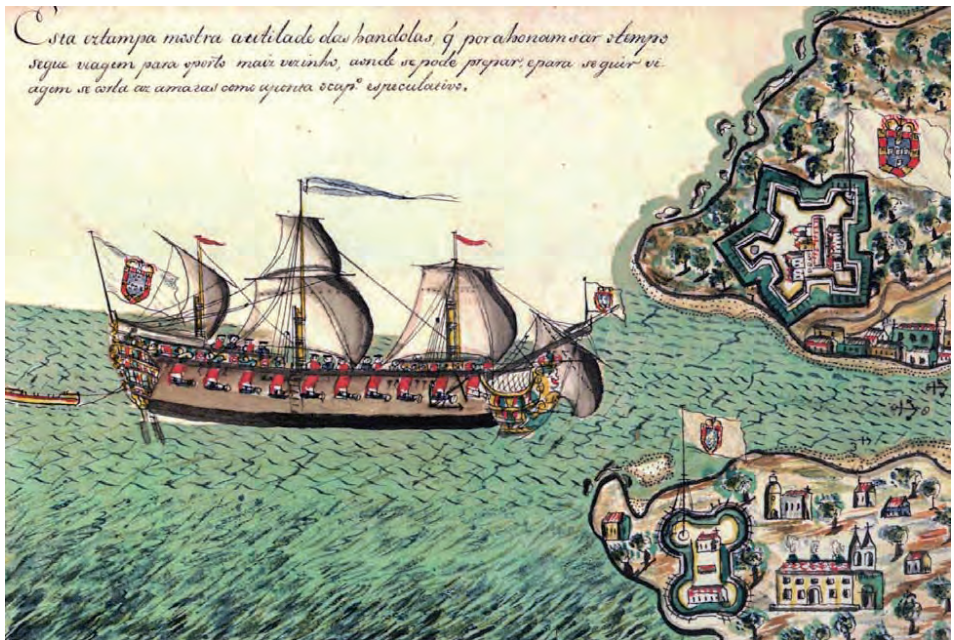 Esta eztampa mostra autilade das bandolas, q̃ por abonamsar otempo
segue viagem para oporto maiz vezinho, aonde se pode prepar, epara seguir vi-
agem se corta az amaras como aponta ocap.º especulativo.